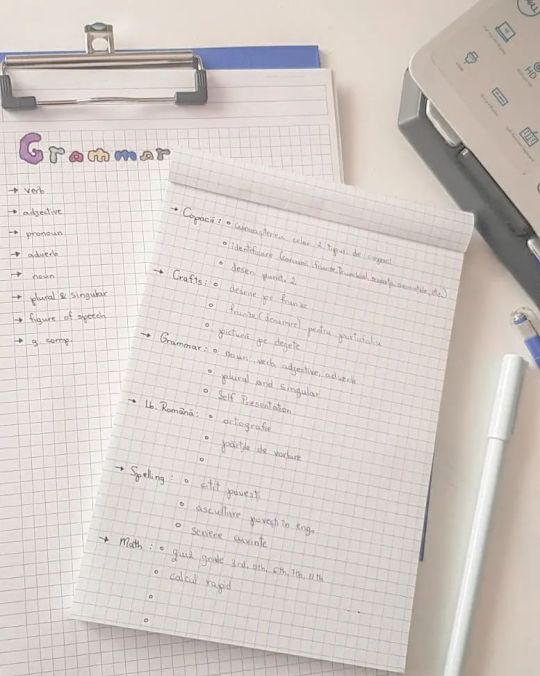 Grammar
→ verb
→ adjective
→ pronoun
→ adverb
→ noun
→ plural & singular
→ figure of speech
→ g. comp.
→ Copacii: o caracterizea celor 2 tipuri de copaci
o identificare (coroană, frunze, trunchiul, etc.)
o desen punct. 2
→ Crafts: o desene pe frunze
o frunze (denumire) pentru
o pictură pe degete
→ Grammar: o noun, verb, adjective, adverb
o plural and singular
o Self Presentation
→ Lb. Română: o ortografie
o părțile de vorbire
o
→ Spelling: o citit povesti
o ascultare povești în eng.
o scriere cuvinte
→ Math: o quiz grade 3rd, 5th, 6th, 7th,
o calcul rapid
o
o
HD